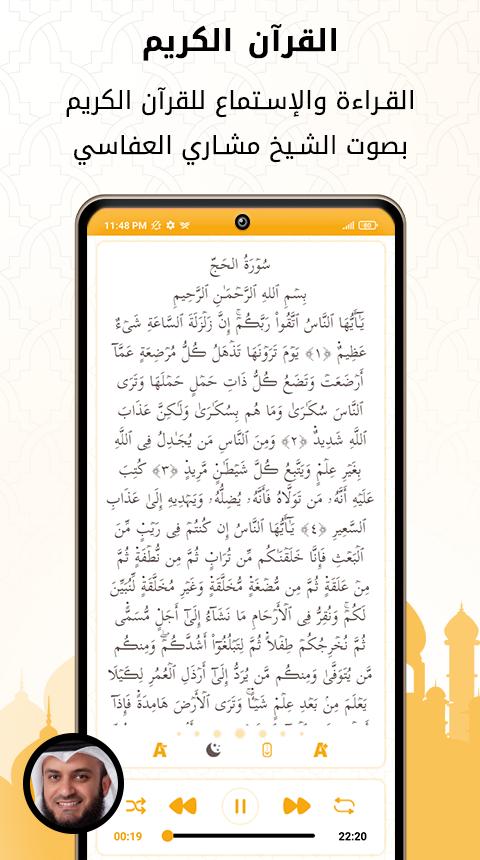 القرآن الكريم
القراءة والإستماع للقرآن الكريم
بصوت الشيخ مشاري العفاسي
11:48 PM
80
سُورَةُ الحَجِّ
بِسْمِ ٱللهِ ٱلرَّحْمَـٰنِ ٱلرَّحِيمِ
يَـٰٓأَيُّهَا ٱلنَّاسُ ٱتَّقُوا۟ رَبَّكُمْ ۚ إِنَّ زَلْزَلَةَ ٱلسَّاعَةِ شَىْءٌ
عَظِيمٌ ﴿١﴾ يَوْمَ تَرَوْنَهَا تَذْهَلُ كُلُّ مُرْضِعَةٍ عَمَّآ
أَرْضَعَتْ وَتَضَعُ كُلُّ ذَاتِ حَمْلٍ حَمْلَهَا وَتَرَى
ٱلنَّاسَ سُكَـٰرَىٰ وَمَا هُم بِسُكَـٰرَىٰ وَلَـٰكِنَّ عَذَابَ
ٱللَّهِ شَدِيدٌ ﴿٢﴾ وَمِنَ ٱلنَّاسِ مَن يُجَـٰدِلُ فِى ٱللَّهِ
بِغَيْرِ عِلْمٍ وَيَتَّبِعُ كُلَّ شَيْطَـٰنٍ مَّرِيدٍ ﴿٣﴾ كُتِبَ
عَلَيْهِ أَنَّهُۥ مَن تَوَلَّاهُ فَأَنَّهُۥ يُضِلُّهُۥ وَيَهْدِيهِ إِلَىٰ عَذَابِ
ٱلسَّعِيرِ ﴿٤﴾ يَـٰٓأَيُّهَا ٱلنَّاسُ إِن كُنتُمْ فِى رَيْبٍ مِّنَ
ٱلْبَعْثِ فَإِنَّا خَلَقْنَـٰكُم مِّن تُرَابٍ ثُمَّ مِن نُّطْفَةٍ ثُمَّ
مِنْ عَلَقَةٍ ثُمَّ مِن مُّضْغَةٍ مُّخَلَّقَةٍ وَغَيْرِ مُخَلَّقَةٍ لِّنُبَيِّنَ
لَكُمْ ۚ وَنُقِرُّ فِى ٱلْأَرْحَامِ مَا نَشَآءُ إِلَىٰٓ أَجَلٍ مُّسَمًّى
ثُمَّ نُخْرِجُكُمْ طِفْلًا ثُمَّ لِتَبْلُغُوٓا۟ أَشُدَّكُمْ ۖ وَمِنكُم
مَّن يُتَوَفَّىٰ وَمِنكُم مَّن يُرَدُّ إِلَىٰٓ أَرْذَلِ ٱلْعُمُرِ لِكَيْلَا
يَعْلَمَ مِنۢ بَعْدِ عِلْمٍ شَيْـًٔا ۚ وَتَرَى ٱلْأَرْضَ هَامِدَةً فَإِذَآ
A- A+
00:19 22:20